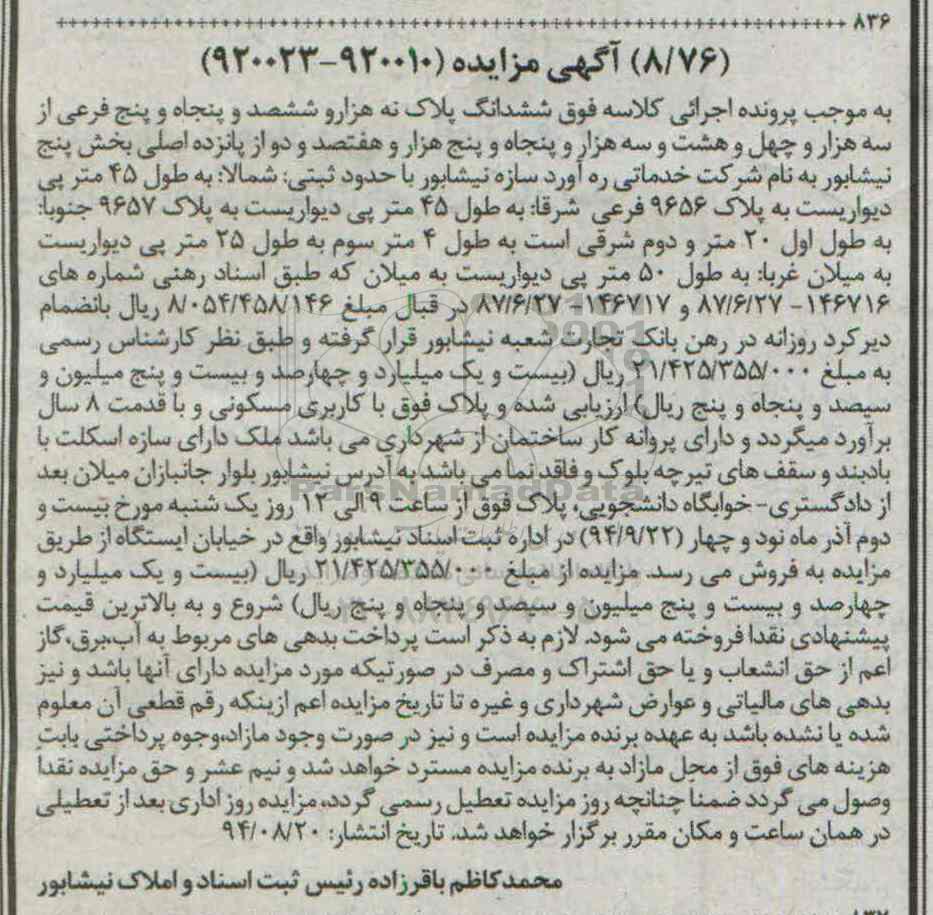 ۸۳۶
(۸/۷۶) آگهی مزایده (۹۲۰۰۱۰-۹۲۰۰۲۳)
به موجب پرونده اجرائی کلاسه فوق ششدانگ پلاک نه هزارو ششصد و پنجاه و پنج فرعی از
سه هزار و چهل و هشت و سه هزار و پنجاه و پنج هزار و هفتصد و دو از پانزده اصلی بخش پنج
نیشابور به نام شرکت خدماتی ره آورد سازه نیشابور با حدود ثبتی: شمالا: به طول ۴۵ متر پی
دیواریست به پلاک ۹۶۵۶ فرعی شرقا: به طول ۴۵ متر پی دیواریست به پلاک ۹۶۵۷ جنوبا:
به طول اول ۲۰ متر و دوم شرقی است به طول ۴ متر سوم به طول ۲۵ متر پی دیواریست
به میلان غربا: به طول ۵۰ متر پی دیواریست به میلان که طبق اسناد رهنی شماره های
۱۴۶۷۱۶- ۸۷/۶/۲۷ و ۱۴۶۷۱۷-۸۷/۶/۲۷ در قبال مبلغ ۸/۰۵۴/۴۵۸/۱۴۶ ریال بانضمام
دیرکرد روزانه در رهن بانک تجارت شعبه نیشابور قرار گرفته و طبق نظر کارشناس رسمی
به مبلغ ۲۱/۴۲۵/۳۵۵/۰۰۰ ریال (بیست و یک میلیارد و چهارصد و بیست و پنج میلیون و
سیصد و پنجاه و پنج ریال) ارزیابی شده و پلاک فوق با کاربری مسکونی و با قدمت ۸ سال
برآورد میگردد و دارای پروانه کار ساختمان از شهرداری می باشد ملک دارای سازه اسکلت با
بادبند و سقف های تیرچه بلوک و فاقد نما می باشد به آدرس نیشابور بلوار جانبازان میلان بعد
از دادگستری- خوابگاه دانشجویی، پلاک فوق از ساعت ۹ الی ۱۲ روز یک شنبه مورخ بیست و
دوم آذر ماه نود و چهار (۹۴/۹/۲۲) در اداره ثبت اسناد نیشابور واقع در خیابان ایستگاه از طریق
مزایده به فروش می رسد. مزایده از مبلغ ۲۱/۴۲۵/۳۵۵/۰۰۰ ریال (بیست و یک میلیارد و
چهارصد و بیست و پنج میلیون و سیصد و پنجاه و پنج ریال) شروع و به بالاترین قیمت
پیشنهادی نقدا فروخته می شود. لازم به ذکر است پرداخت بدهی های مربوط به آب،برق،گاز
اعم از حق انشعاب و یا حق اشتراک و مصرف در صورتیکه مورد مزایده دارای آنها باشد و نیز
بدهی های مالیاتی و عوارض شهرداری و غیره تا تاریخ مزایده اعم ازینکه رقم قطعی آن معلوم
شده یا نشده باشد به عهده برنده مزایده است و نیز در صورت وجود مازاد،وجوه پرداختی بابت
هزینه های فوق از محل مازاد به برنده مزایده مسترد خواهد شد و نیم عشر و حق مزایده نقدا
وصول می گردد ضمنا چنانچه روز مزایده تعطیل رسمی گردد، مزایده روز اداری بعد از تعطیلی
در همان ساعت و مکان مقرر برگزار خواهد شد. تاریخ انتشار: ۹۴/۰۸/۲۰
محمدکاظم باقرزاده رئیس ثبت اسناد و املاک نیشابور
ParsNamadData